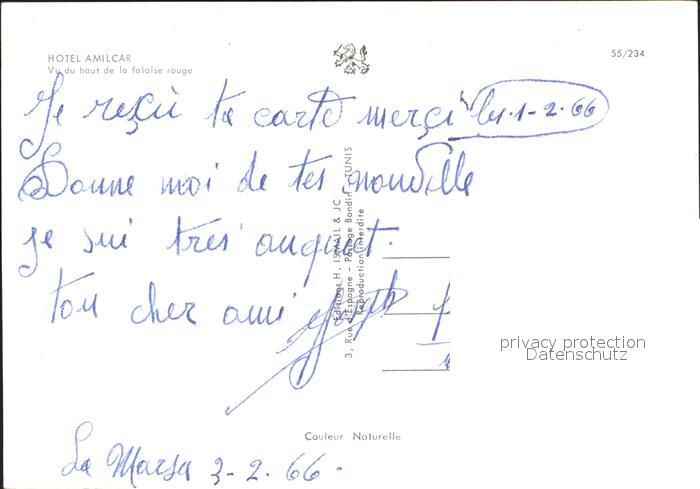 HOTEL AMILCAR
Vu du haut de la falaise rouge
55/234
Je reçu ta carte merçi le 1-2.66
Donne moi de tes nouvelle
je sui tres anquiet.
ton cher ami
Editions H. ISMAIL & JC
TUNIS
3, Rue d'Espagne - Passage Bondin
Reproduction interdite
privacy protection
Datenschutz
Couleur Naturelle
La Marsa 3-2.66.